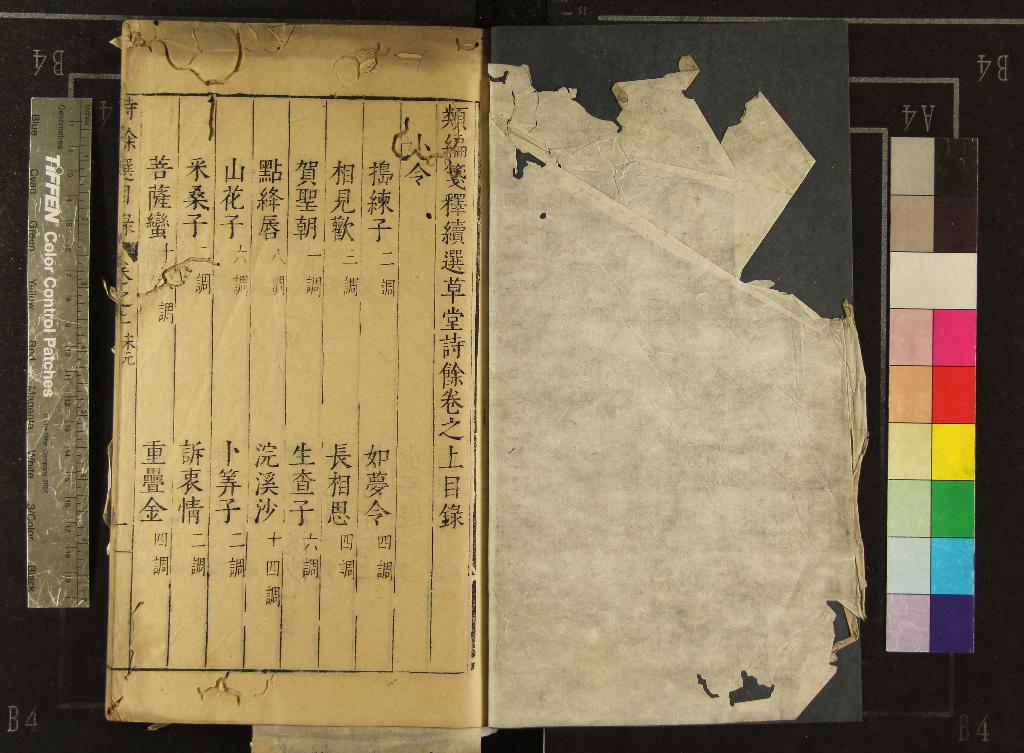 類編箋釋續選草堂詩餘卷之上目錄
小令
搗練子 二調 如夢令 四調
相見歡 三調 長相思 四調
賀聖朝 一調 生查子 六調
點絳唇 八調 浣溪沙 十四調
山花子 六調 卜筭子 二調
采桑子 二調 訴衷情 二調
菩薩蠻 調 重疊金 四調
詩餘選目錄
TIFFEN Color Control Patches
Blue Cyan Green Yellow Red Magenta White 3/Color Black
Centimetres
B4
B4
A4
A4
B4
B4